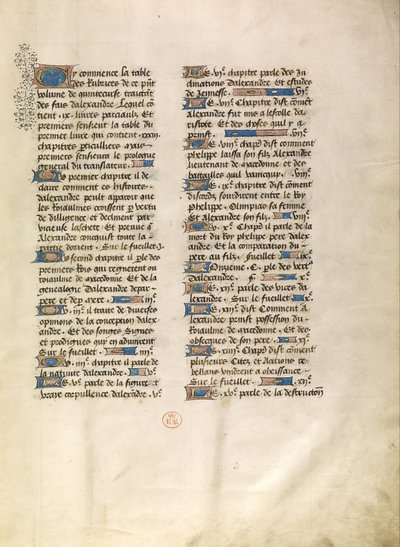 Cy commence la table
des Rubrices de ce pñt
volume de quintecurse traictãt
des fais dalexandre Lequel cõ
tient .ix. livres parciaulx Et
premiers senssieut la table du
premier livre qui contient .xxxj.
chapitres particuliers mais
premiers senssieut le prologue
general du translateur
Ou premier chapitre il de
claire comment ces histoires
dalexandre
de dilligence et declinent par
vicieuse laschete Et preuue q̃
Alexandre conquist toute la
partie dorient . Sur le fueillet .j.
Ou second chapitre il ple des
premiers Rois qui regnerent ou
roiaulme de macedone Et de la
genealogie Dalexandre de par
pere et de p mere . iijᵉ.
Ou .iijᵉ. il traite de diverses
opinions de la conception dalex
andre . Et des songes Signes
et prodigues qui en advinrent
Sur le fueillet . iiijᵉ.
Ou .iiijᵉ. chapitre il parle de
la nativite dalexandre . vᵉ.
Le .vᵉ. parle de la figure et
vraye corpullence dalexãdre . vᵉ.
Le .vjᵉ. chapitre parle des In
clinations dalexandre Et estudes
de Jennesse . vjᵉ.
Le .vijᵉ. Chapitre dist cõmẽt
Alexandre fut mis a lescolle da
ristote Et des choses quil y a
prinst . viijᵉ.
Le .viijᵉ. chap̃ dist comment
phelippe laissa son filz Alexandre
lieutenant de macedone et des
batailles quil vainquist .
Le .ixᵉ. chapitre dist cõment
discords sourdirent entre le Roy
phelippe . Olimpias sa femme
Et Alexandre son filz .
Le .xᵉ. Chap̃ il parle de la
mort du Roy phelippe pere dalex
andre Et la comparation du
pere au filz . fueillet
Onzieme . C. ple des vert9
Dalexandre . f. xᵉ.
Le .xijᵉ. parle des vices da
lexandre . Sur le fueillet . xᵉ.
Le .xiijᵉ. dist Comment A
lexandre prinst possession du
Roiaulme de macedone . Et des
obseques de son pere . xjᵉ.
Le .xiiijᵉ. Chap̃ dist cõment
plusieurs Citez et Nations re
bellans vindrent a obeissance .
Sur le fueillet . xijᵉ.
Le .xvᵉ. parle de la destruction